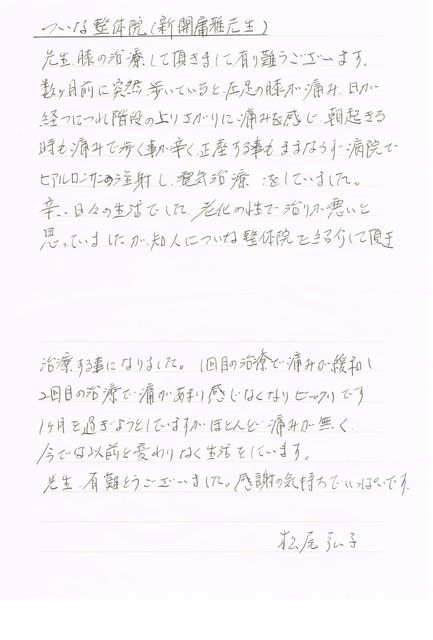 ついな整体院(新開庸雅先生)
先生 膝の治療して頂きまして有り難うございます。
数ヶ月前に突然歩いていると左足の膝が痛み、日が
経つにつれ階段の上りさがりに痛みを感じ、朝起きる
時も痛みで歩く事が辛く正座する事もままならず病院で
ヒアルロンサンの注射し、電気治療をしていました。
辛い日々の生活でした。老化の性で治りが悪いと
思っていましたが、知人についな整体院を紹介して頂き
治療する事になりました。1回目の治療で痛みが緩和し
2回目の治療で痛があまり感じなくなりビックリです
1ヶ月を過ぎようとしていますがほとんど痛みが無く、
今では以前と変わりなく生活をしています。
先生、有難とうございました。感謝の気持ちでいっぱいです。
松尾弘子